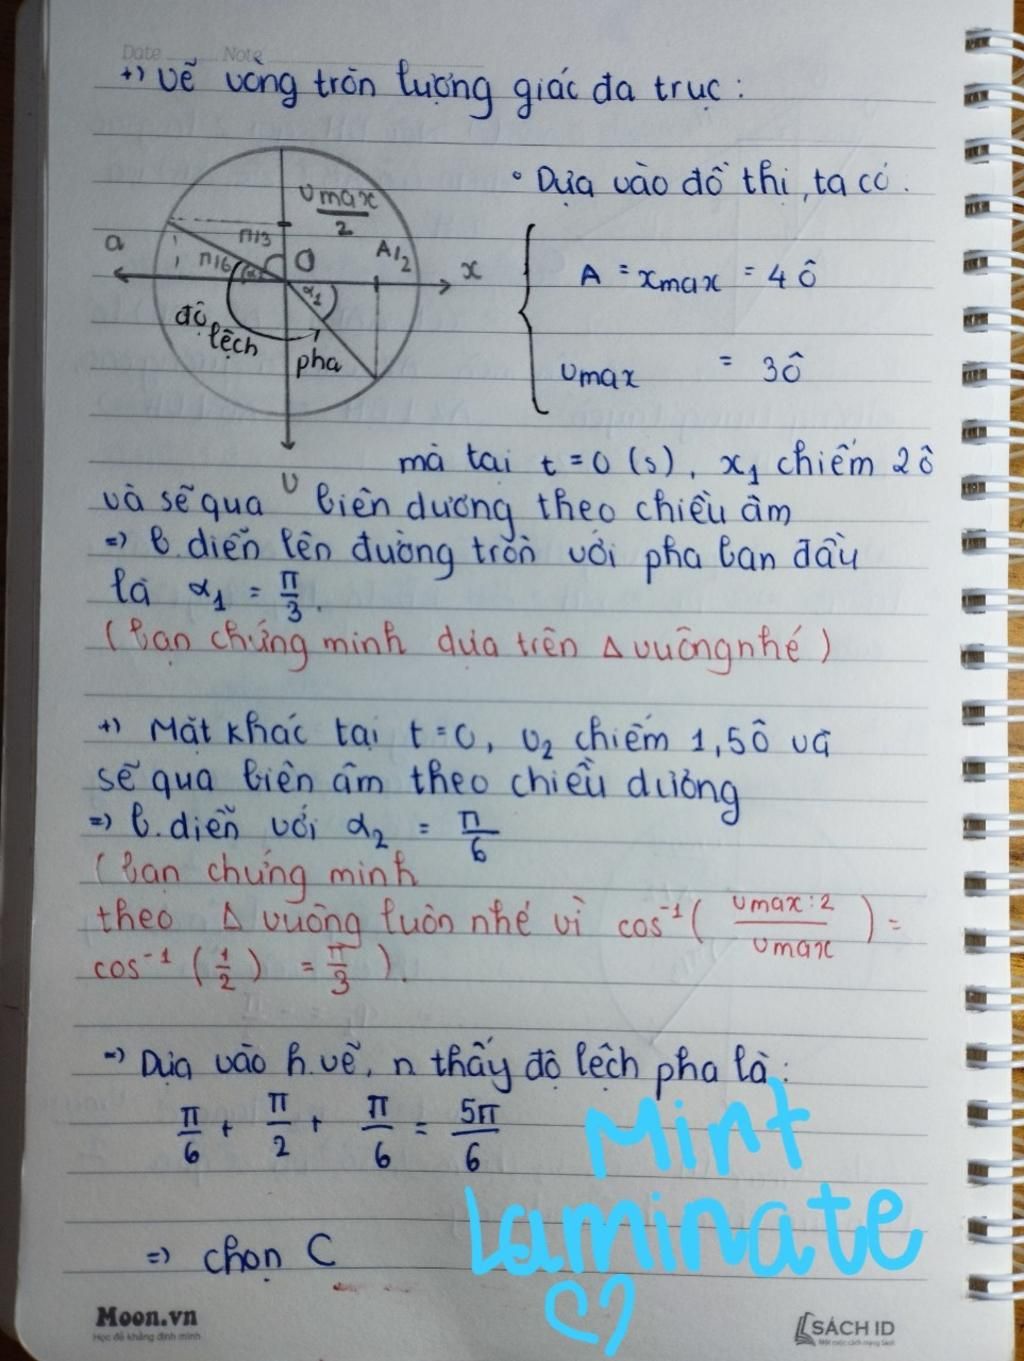 Date Note
+) Vẽ vòng tròn lượng giác đa trục:
• Dựa vào đồ thị, ta có:
vmax/2
π/3
A/2
a
π/6
O
x
α₁
độ lệch pha
A = xmax = 4 ô
vmax = 3 ô
v
mà tại t = 0 (s), x₁ chiếm 2 ô
và sẽ qua biên dương theo chiều âm
=> b.diễn lên đường tròn với pha ban đầu
là α₁ = π/3.
(bạn chứng minh dựa trên Δ vuông nhé)
+) Mặt khác tại t=0, v₂ chiếm 1,5 ô và
sẽ qua biên âm theo chiều dương
=> b.diễn với α₂ = π/6
(bạn chứng minh
theo Δ vuông luôn nhé vì cos⁻¹(vmax:2/vmax) =
cos⁻¹(1/2) = π/3).
=> Dựa vào h.vẽ, n thấy độ lệch pha là:
π/6 + π/2 + π/6 = 5π/6
Mint
Laminate
=> chọn C
Moon.vn
Học để khẳng định mình
SÁCH ID